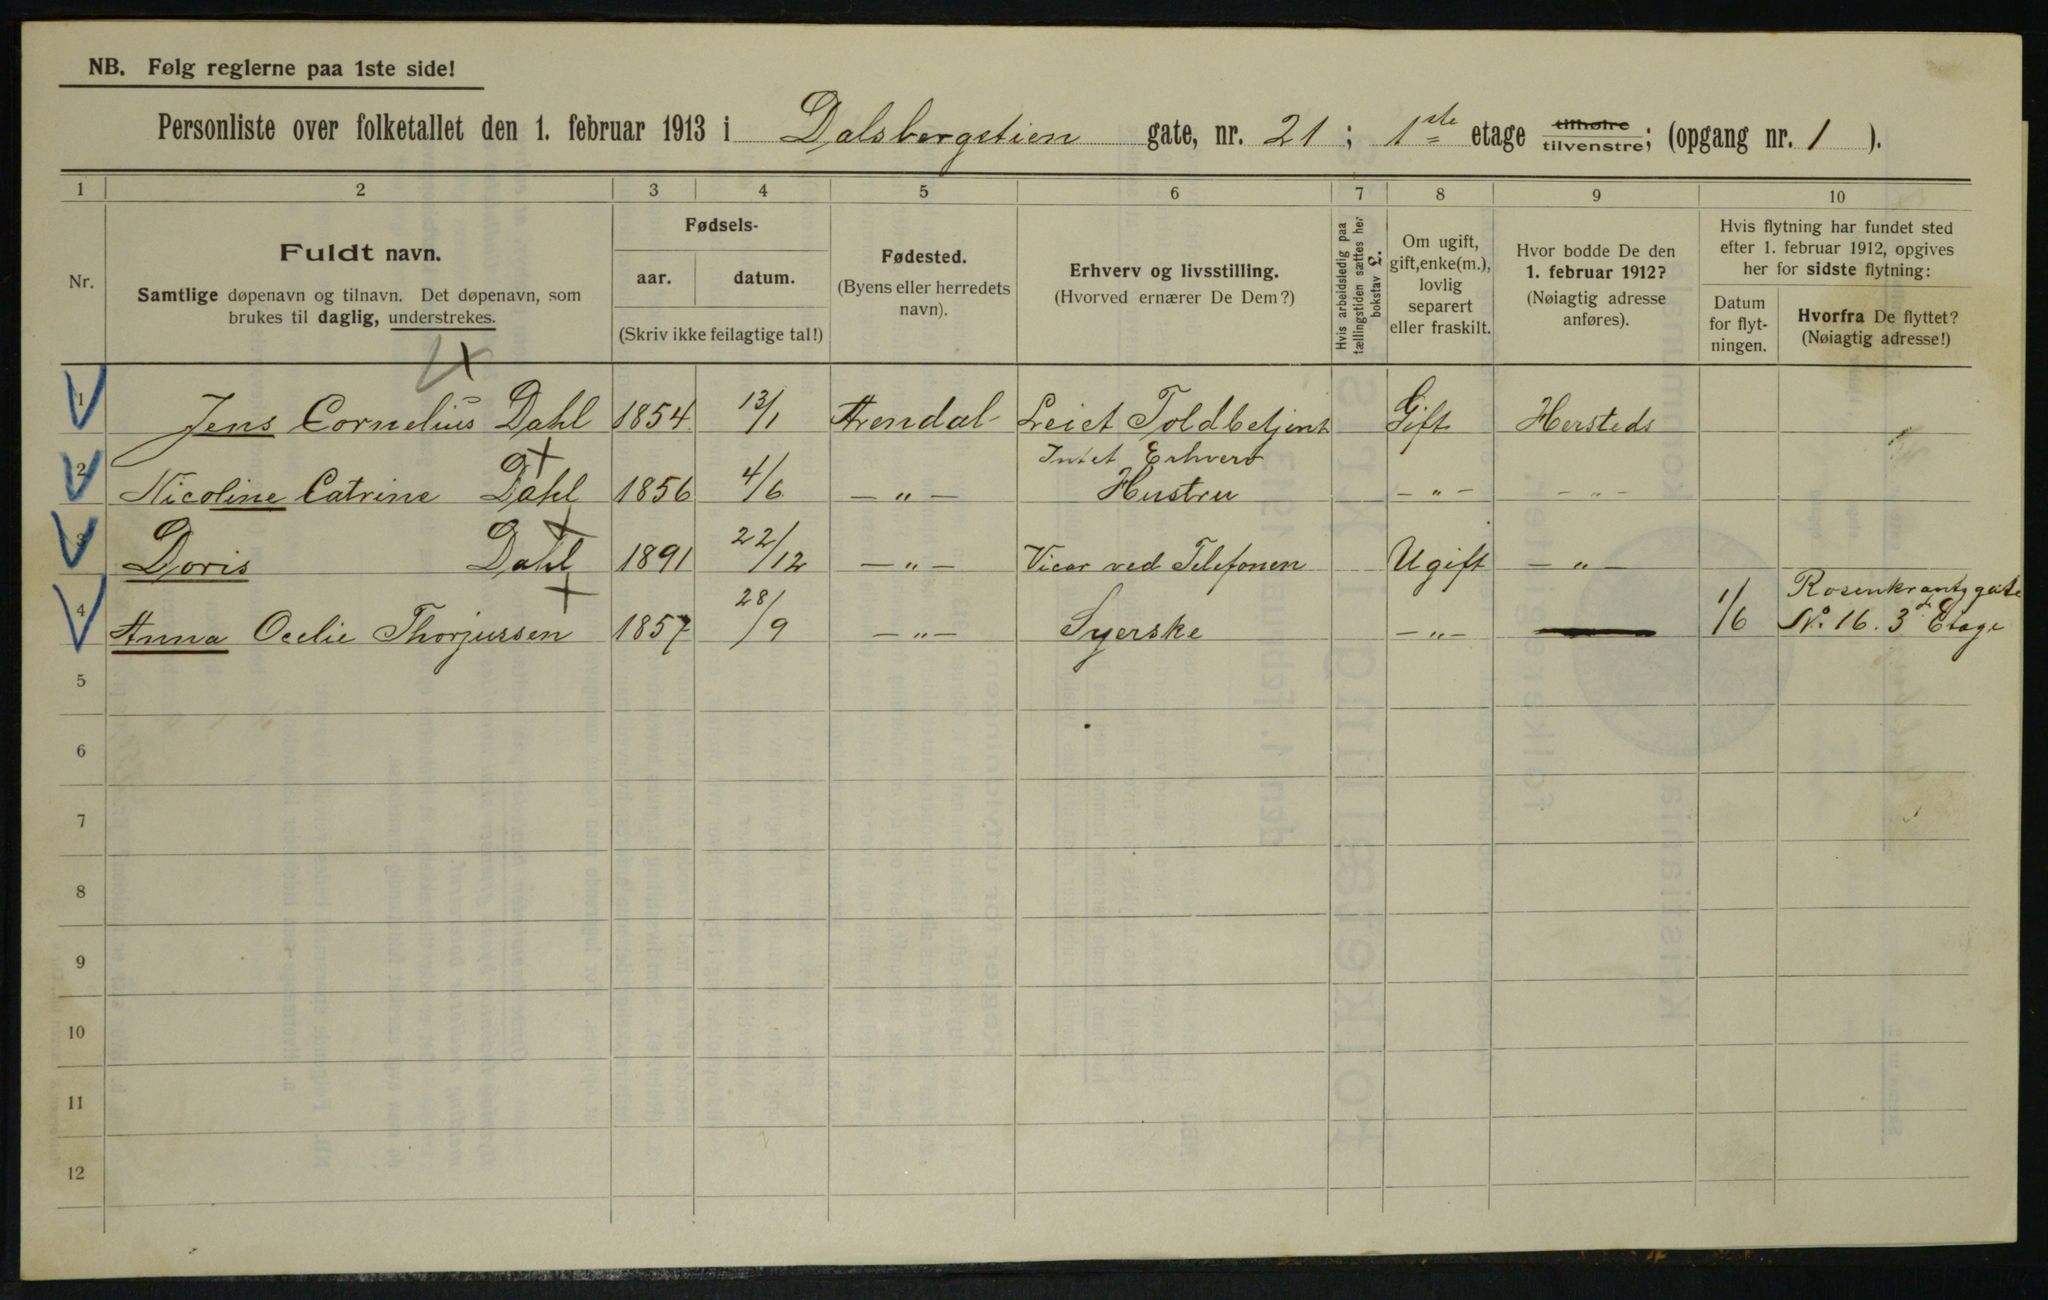 NB. Følg reglerne paa 1ste side!
Personliste over folketallet den 1. februar 1913 i Dalsbergstien gate, nr. 21 ; 1ste etage tilhøire tilvenstre; (opgang nr. 1 ).
1 2 3 4 5 6 7 8 9 10
Nr.
Fuldt navn.
Samtlige døpenavn og tilnavn. Det døpenavn, som
brukes til daglig, understrekes.
Fødsels-
aar. datum.
(Skriv ikke feilagtige tal!)
Fødested.
(Byens eller herredets
navn).
Erhverv og livsstilling.
(Hvorved ernærer De Dem?)
Hvis arbeidsledig paa
tællingstiden sættes her
bokstav L.
Om ugift,
gift, enke(m.),
lovlig
separert
eller fraskilt.
Hvor bodde De den
1. februar 1912?
(Nøiagtig adresse
anføres).
Hvis flytning har fundet sted
efter 1. februar 1912, opgives
her for sidste flytning:
Datum
for flyt-
ningen.
Hvorfra De flyttet?
(Nøiagtig adresse!)
1 Jens Cornelius Dahl 1854 13/1 Arendal Leiet Toldbetjent Gift Hersteds
Intet Erhverv
2 Nicoline Catrine Dahl 1856 4/6 — „ — Hustru — „ — — „ —
3 Doris Dahl 1891 22/12 — „ — Vicar ved Telefonen Ugift — „ —
4 Anna Ocelie Thorjussen 1857 28/9 — „ — Syerske — „ — 1/6 Rosenkrantzgate
No 16. 3d Etage
5
6
7
8
9
10
11
12